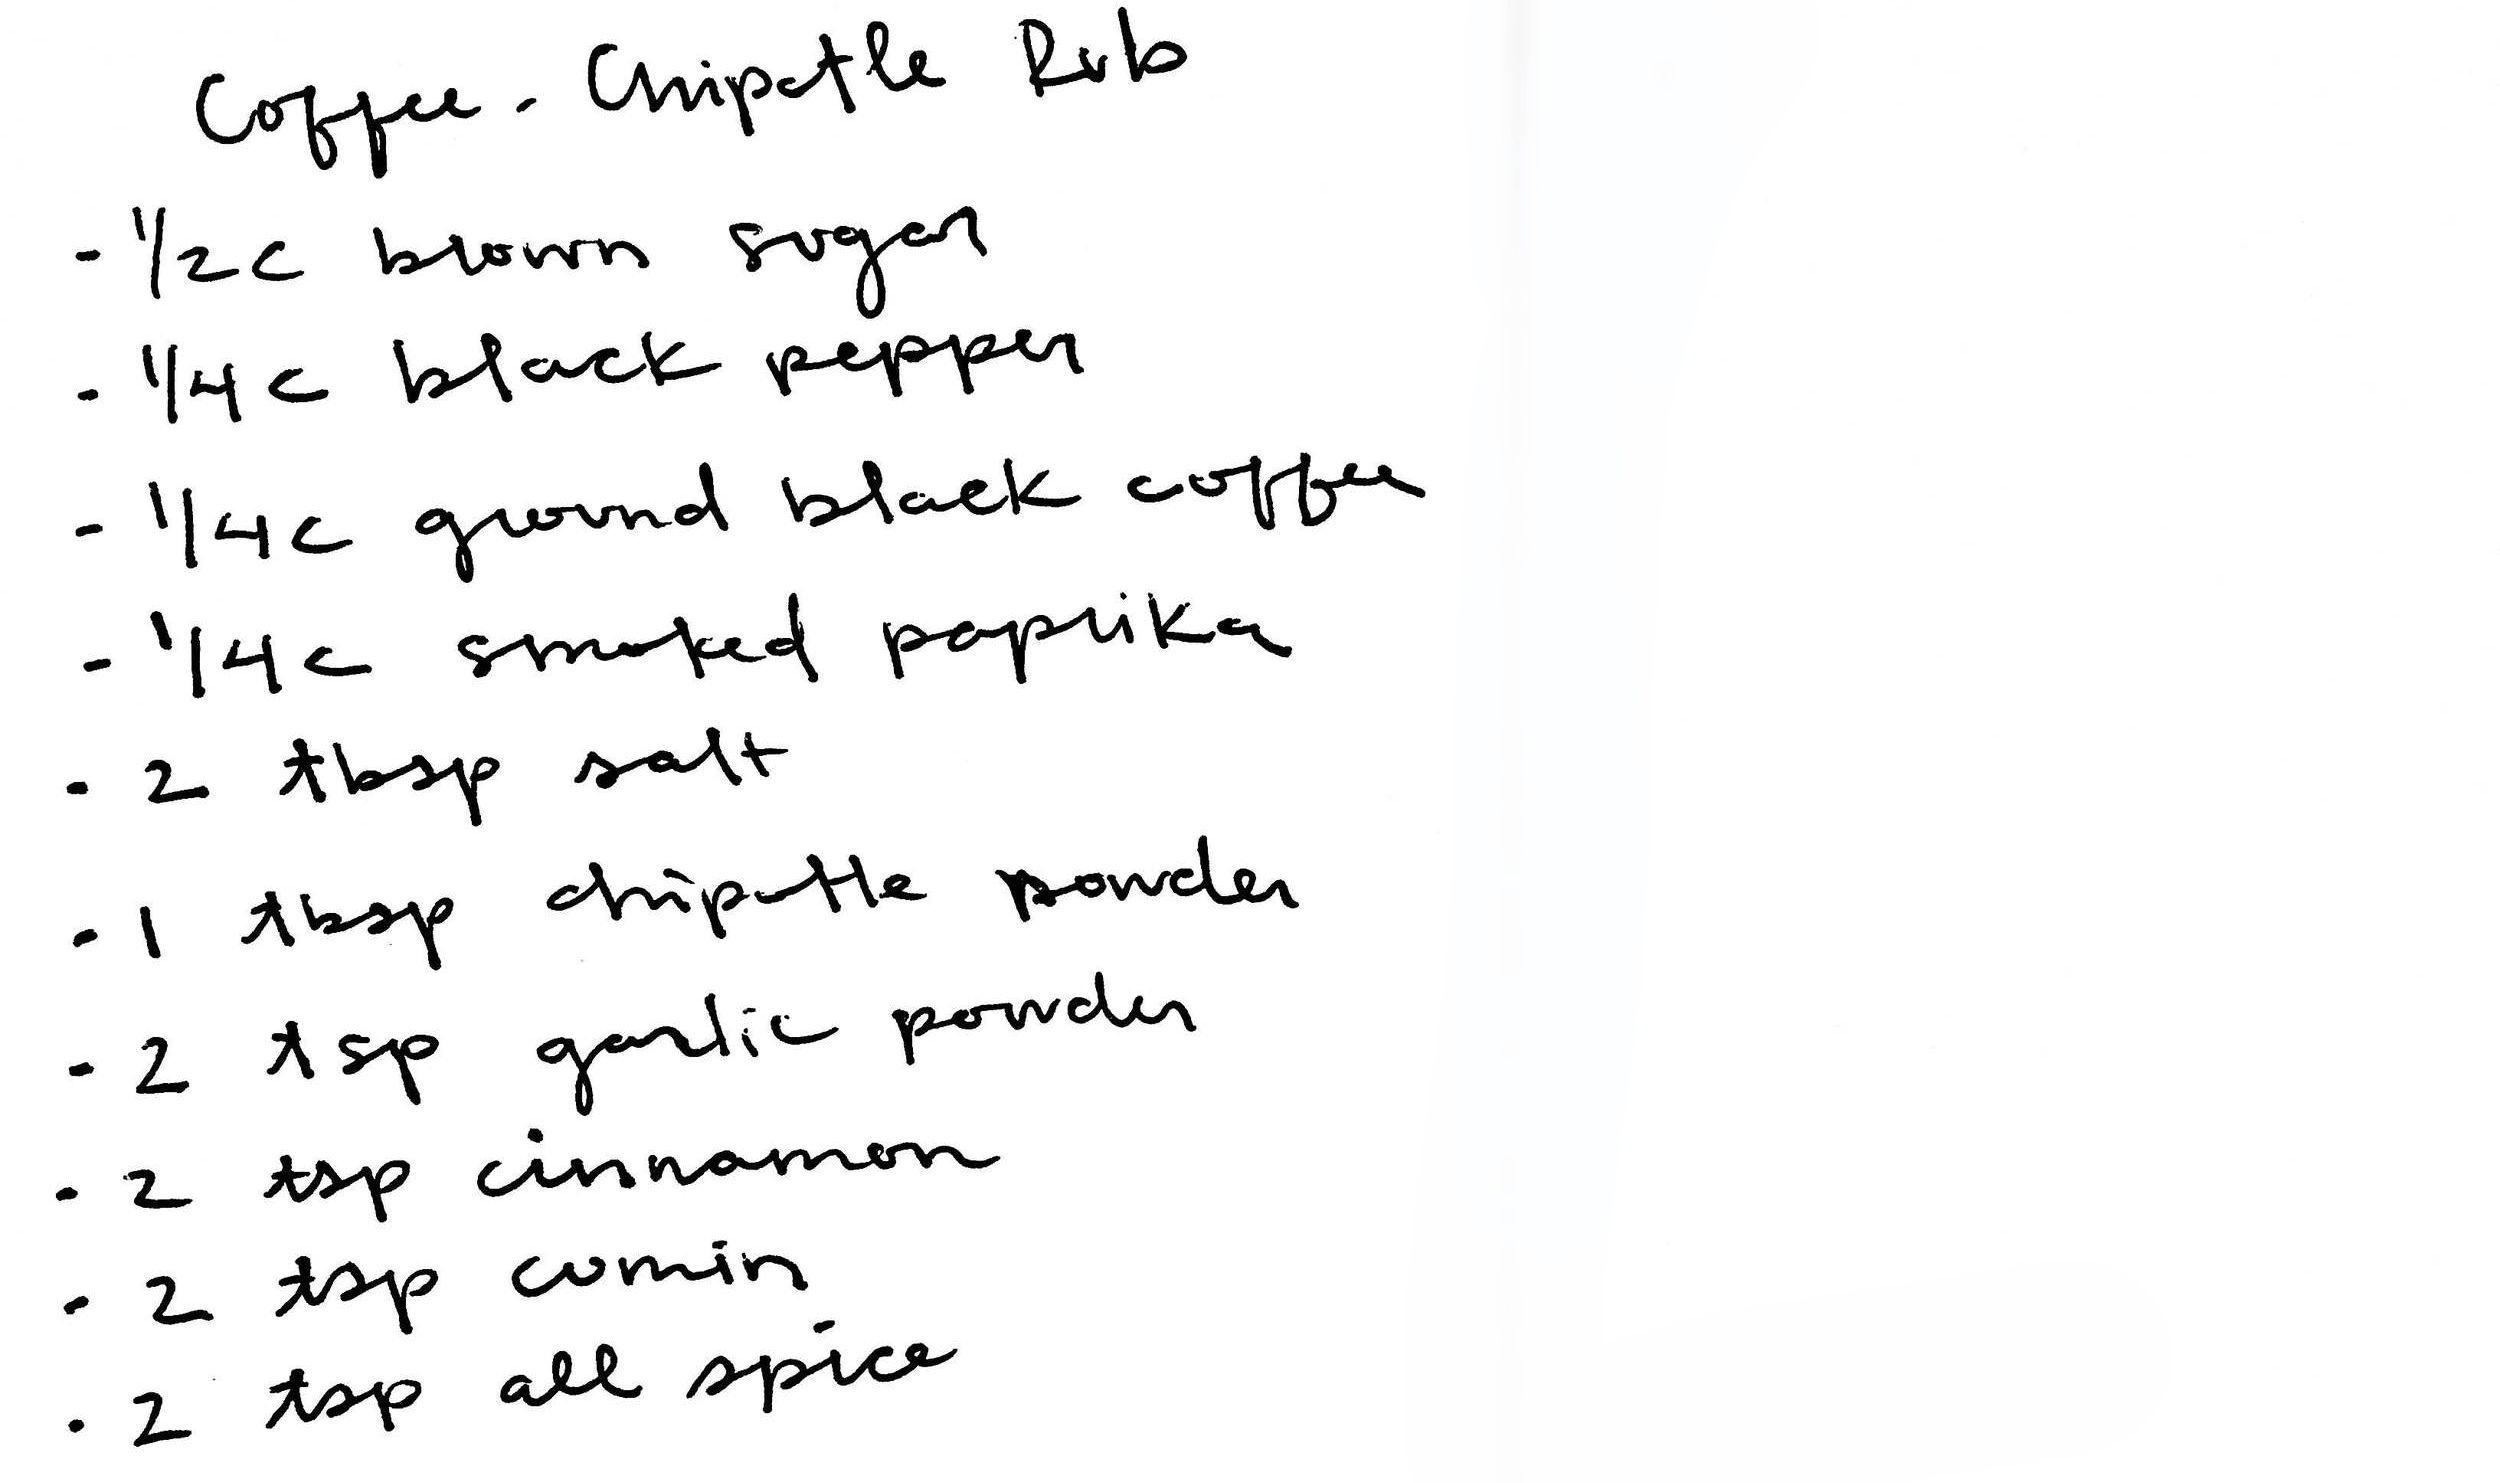 Coffee - Chipotle Rub
- 1/2 c brown sugar
- 1/4 c black pepper
- 1/4 c ground black coffee
- 1/4 c smoked paprika
- 2 tbsp salt
- 1 tbsp chipotle powder
- 2 tsp garlic powder
- 2 tsp cinnamon
- 2 tsp cumin
- 2 tsp all spice